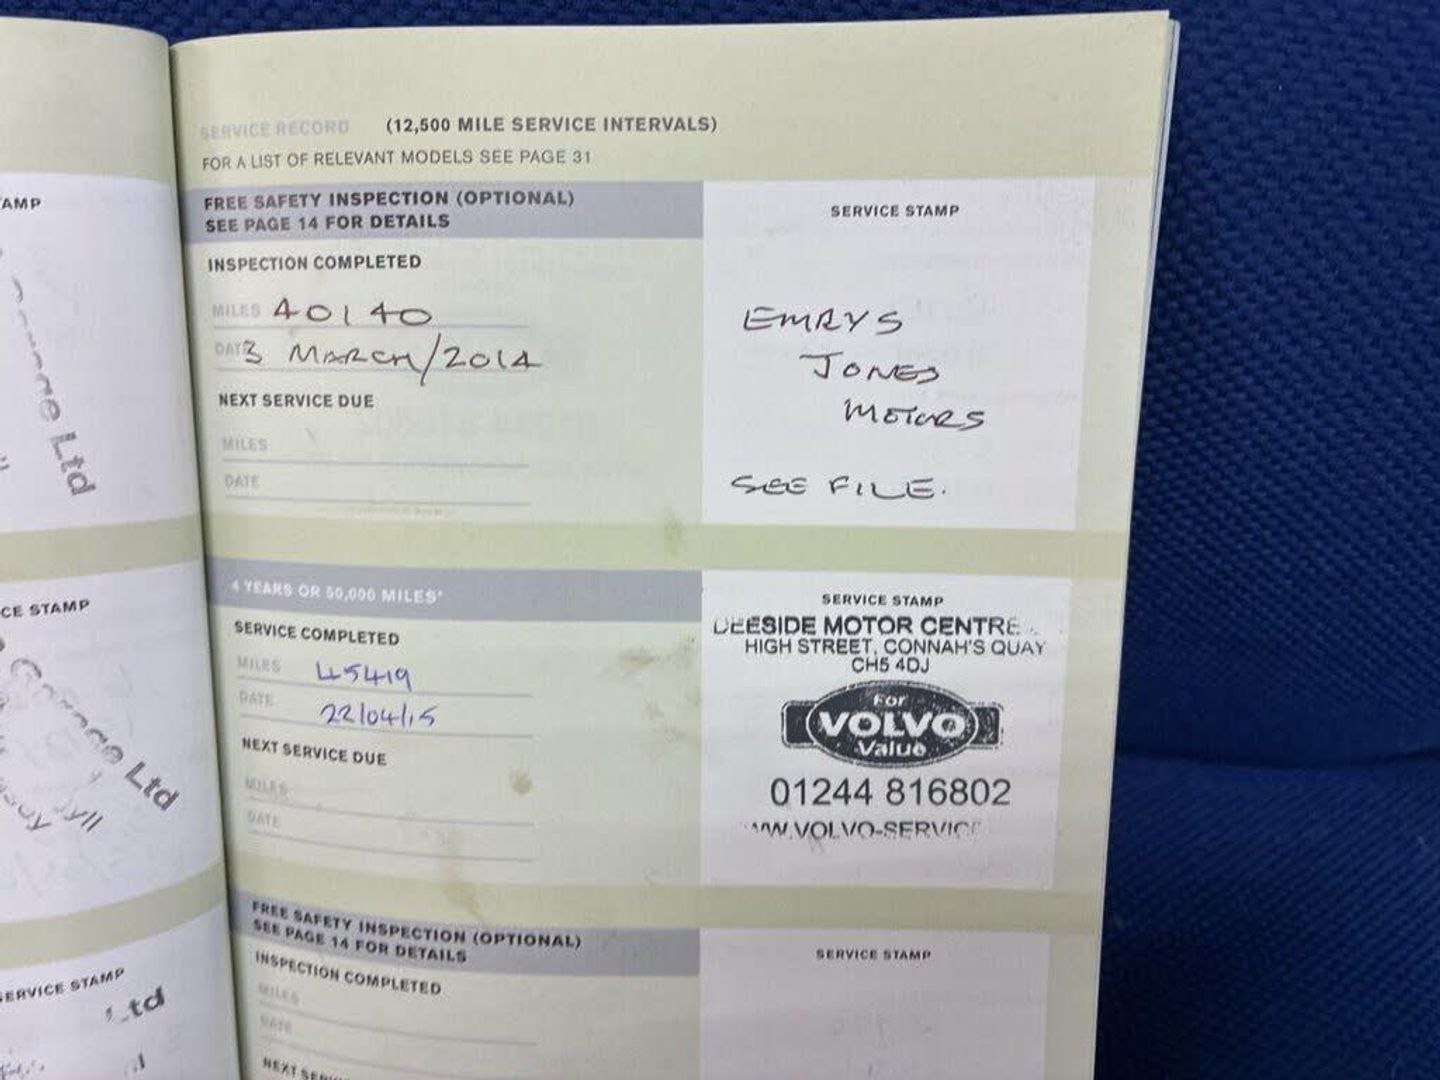 AMP
Ltd
CE STAMP
Garage Ltd
SERVICE STAMP
Ltd
SERVICE RECORD (12,500 MILE SERVICE INTERVALS)
FOR A LIST OF RELEVANT MODELS SEE PAGE 31
FREE SAFETY INSPECTION (OPTIONAL)
SEE PAGE 14 FOR DETAILS
INSPECTION COMPLETED
MILES 40140
DATE 3 MARCH/2014
NEXT SERVICE DUE
MILES
DATE
SERVICE STAMP
EMRYS
JONES
MOTORS
SEE FILE.
4 YEARS OR 50,000 MILES*
SERVICE COMPLETED
MILES 45419
DATE 22/04/15
NEXT SERVICE DUE
MILES
DATE
SERVICE STAMP
DEESIDE MOTOR CENTRE
HIGH STREET, CONNAH'S QUAY
CH5 4DJ
For
VOLVO
Value
01244 816802
WW.VOLVO-SERVICE
FREE SAFETY INSPECTION (OPTIONAL)
SEE PAGE 14 FOR DETAILS
INSPECTION COMPLETED
MILES
DATE
NEXT SERV
SERVICE STAMP